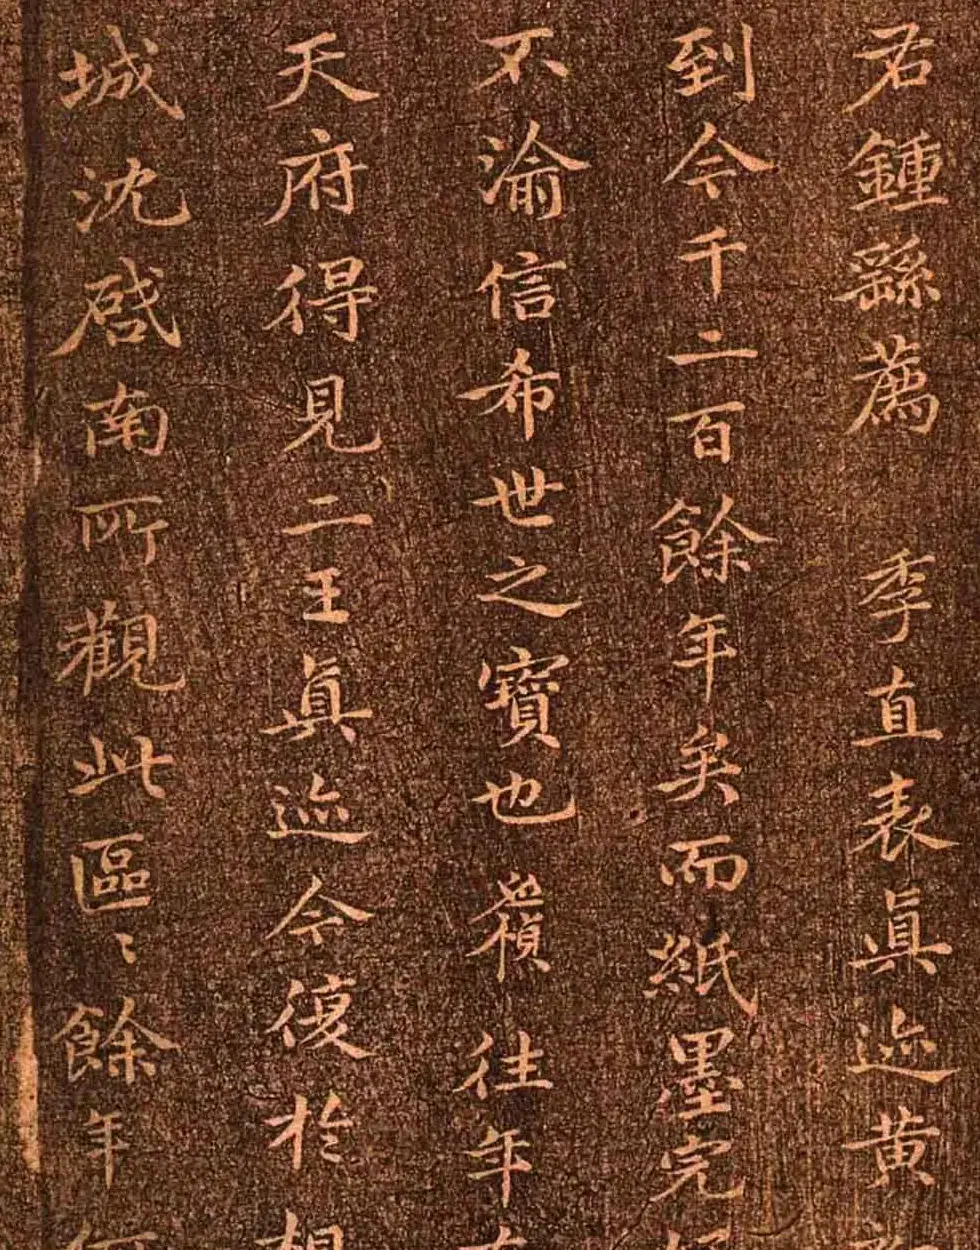 右鍾繇薦 季直表眞迹黄
到今千二百餘年矣而紙墨完
不渝信希世之寶也應禎往年
天府得見二王眞迹今復於
城沈啓南所觀此區〻餘年